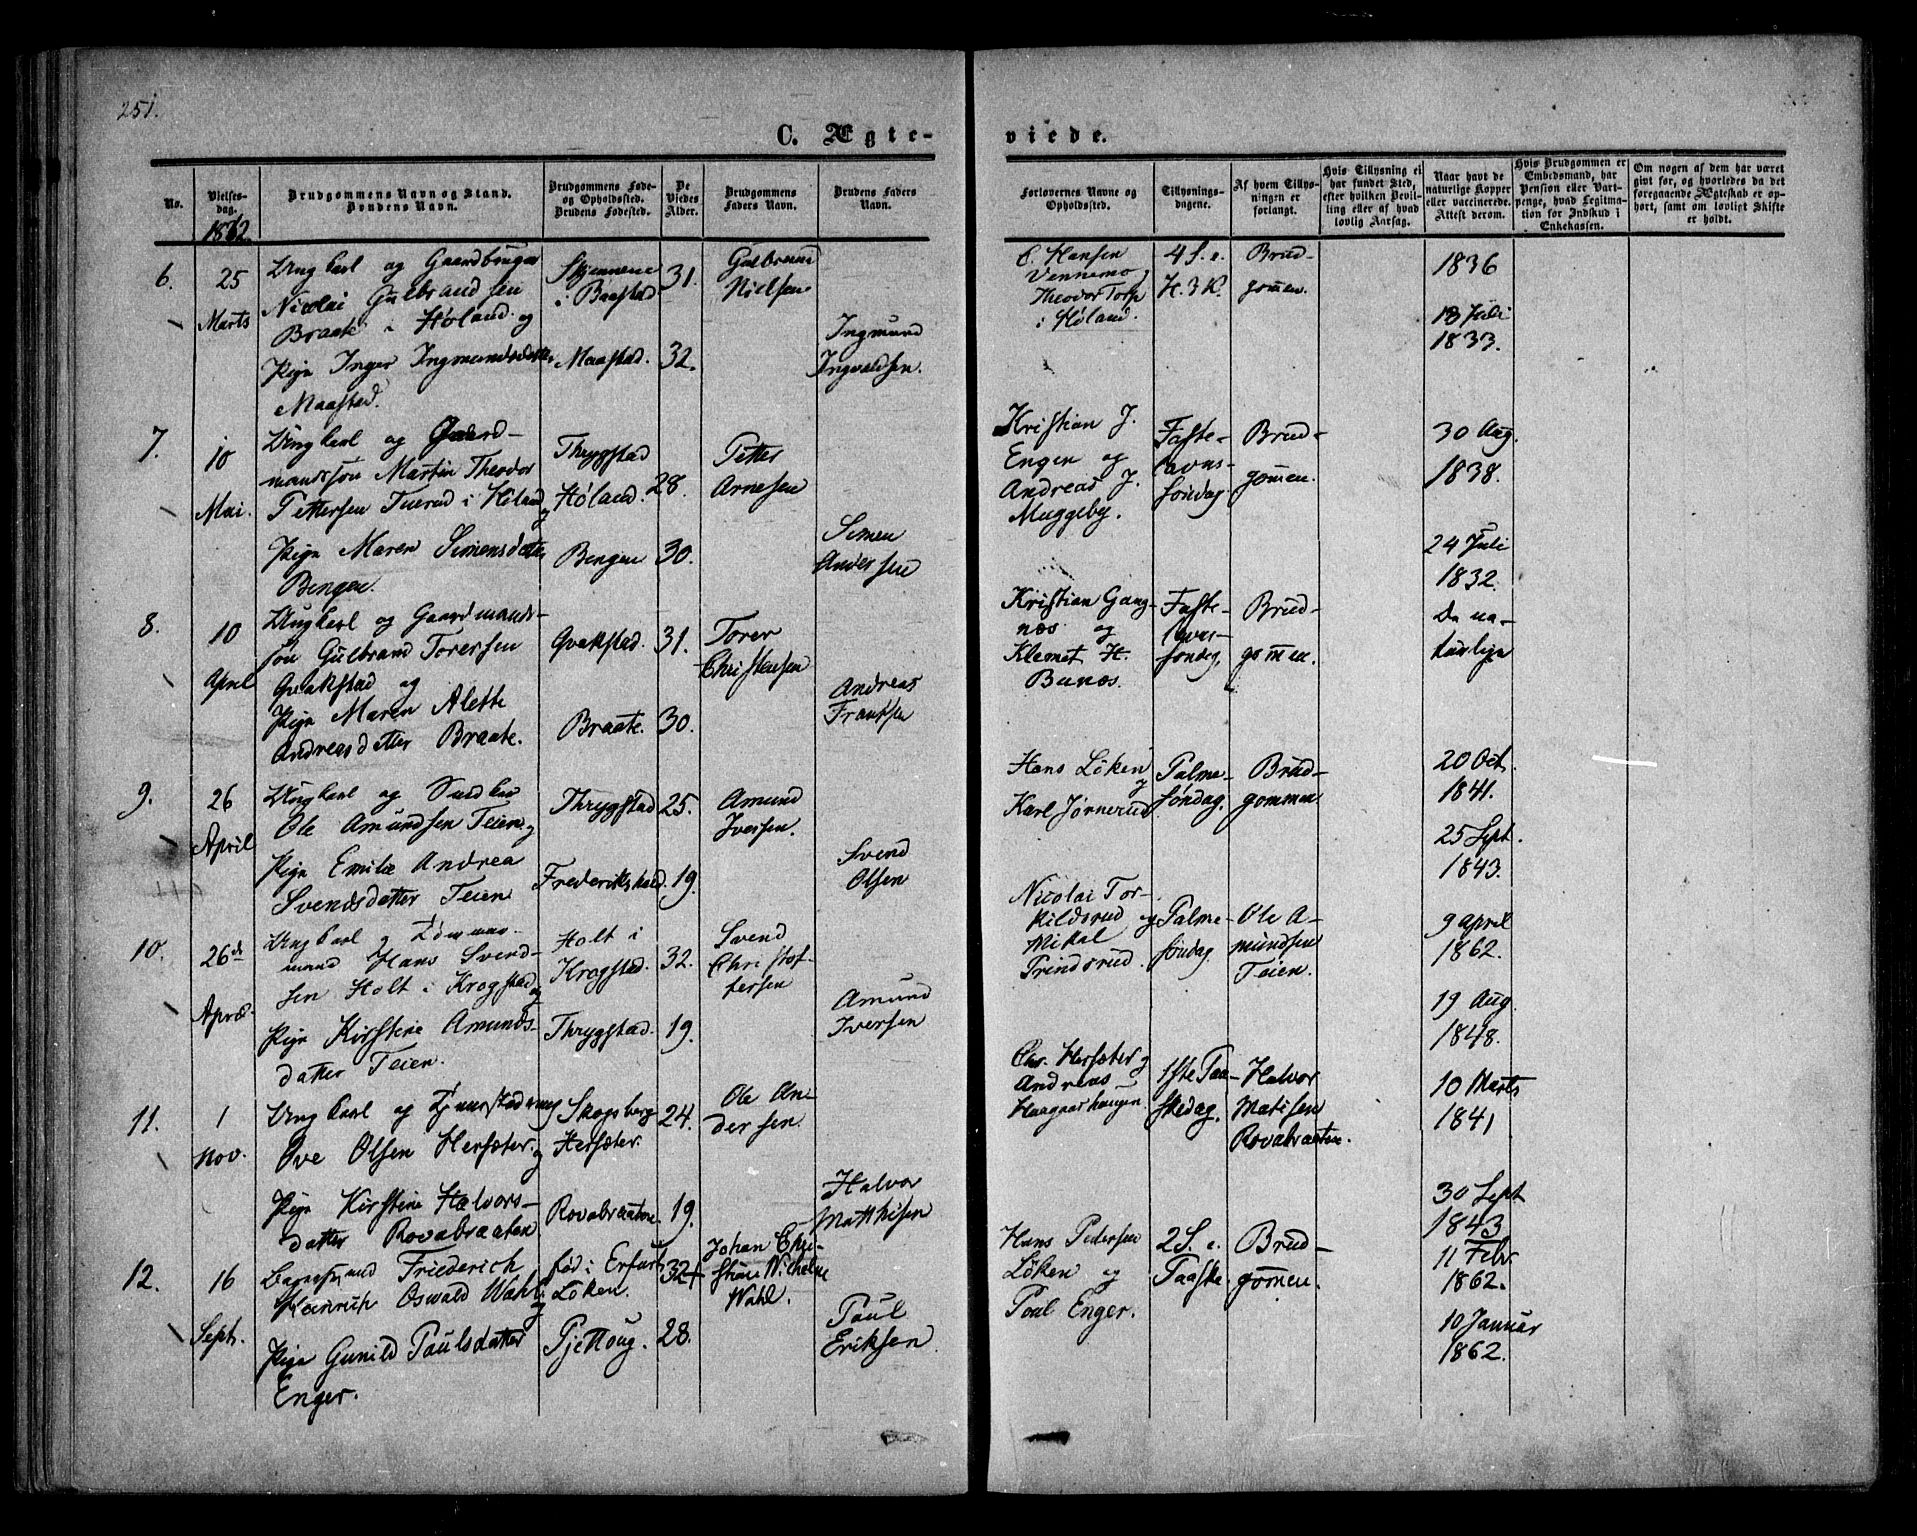 251.
C. Ægte-
viede.
No.
Vielses-
dag.
1862.
Brudgommens Navn og Stand.
Brudens Navn.
Brudgommens Føde-
og Opholdssted.
Brudens Fødested.
De
Viedes
Alder.
Brudgommens
Faders Navn.
Brudens Faders
Navn.
Forlovernes Navne og
Opholdssted.
Tillysnings-
dagene.
Af hvem Tillys-
ningen er
forlangt.
Hvis Tillysning ei
har fundet Sted,
efter hvilken Bevil-
ling eller af hvad
lovlig Aarsag.
Naar havt de
naturlige Kopper
eller vaccinerede.
Attest derom.
Hvis Brudgommen er
Embedsmand, har
Pension eller Vart-
penge, hvad Legitima-
tion for Indskud i
Enkekassen.
Om nogen af dem har været
gift før, og hvorledes da det
foregaaende Ægteskab er op-
hørt, samt om lovligt Skifte
er holdt.
6.
25
Marts
Ungkarl og Gaardbruger
Nicolai Gulbrandsen
Braate i Høland og
Pige Inger Ingmundsdatter
Maastad.
Skjennene
i Baastad
Maastad.
31.
32.
Gulbrand
Nielsen
Ingmund
Ingvaldsen.
C. Hansen
Vennemo og
Theodor Torp
i Høland.
4 S. e.
H. 3 K.
Brud-
gommen.
1836
18 Juli
1833.
7.
10
Mai.
Ungkarl og Gaard-
mandssøn Martin Theodor
Pettersen Tuerud i Høland
og
Pige Maren Simensdatter
Bengen.
Thrygstad
Høland.
Bengen
28.
30.
Petter
Arnesen
Simen
Andersen
Kristian J.
Engen og
Andreas J.
Muggeby.
Faste-
lavns-
søndag
Brud-
gommen.
30 Aug.
1838.
24 Juli
1832.
8.
10
April
Ungkarl og Gaardmands-
søn Gulbrand Torersen
Qvakstad og
Pige Maren Alette
Andreasdatter Braate.
Qvakstad.
Braate.
31.
30.
Torer
Christensen
Andreas
Frantsen
Kristian Gang-
næs og
Klemet H.
Bunæs.
Faste-
lavns-
søndag.
Brud-
gommen.
De na-
turlige
9.
26
April
Ungkarl og
Ole Amundsen Teien og
Pige Emilie Andrea
Svendsdatter Teien
Thrygstad
Frederikshald.
25.
19.
Amund
Iversen.
Svend
Olsen
Hans Löken
og
Karl Jørnerud
Palme-
søndag.
Brud-
gommen
20 Oct.
1841.
25 Sept.
1843.
10.
26de
April
Ungkarl og Tømmer-
mand Hans Svend-
sen Holt i Krogstad
og
Pige Kirstine Amunds-
datter Teien.
Holt i
Krogstad.
Thrygstad.
32.
19.
Svend
Christof-
fersen
Amund
Iversen
Nicolai Tor-
kildsrud og
Mikal
Prindsrud.
Palme-
søndag.
Ole A-
mundsen
Teien.
9 april
1862.
19 Aug
1848.
11.
1
Nov.
Ungkarl og
Ove Olsen Hersæter og
Pige Kirstine Halvors-
datter Rovabraaten
Skogsberg
Hersæter.
Rovabraaten.
24.
19.
Ole An-
dersen.
Halvor
Matthisen
Chr. Hersæter og
Andreas
Haagaarhaugen
1ste Paa-
skedag.
Halvor
Matisen
Rovabraaten.
10 Marts
1841
30 Sept
1843
12.
16
Sept.
Friederich
Heinrich Oswald Wahl
og
Pige Gunild Paulsdatter
Enger.
fød i Erfurt
Löken.
Pjettoug.
32
28.
Johan Chri-
stian Wilhelm
Wahl.
Paul
Eriksen.
Hans Pedersen
Löken og
Poul Enger.
2 S. e.
Paaske.
Brud-
gommen.
11 Febr
1862.
10 Januar
1862.